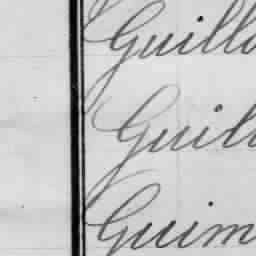 Guillo
Guill
Guim